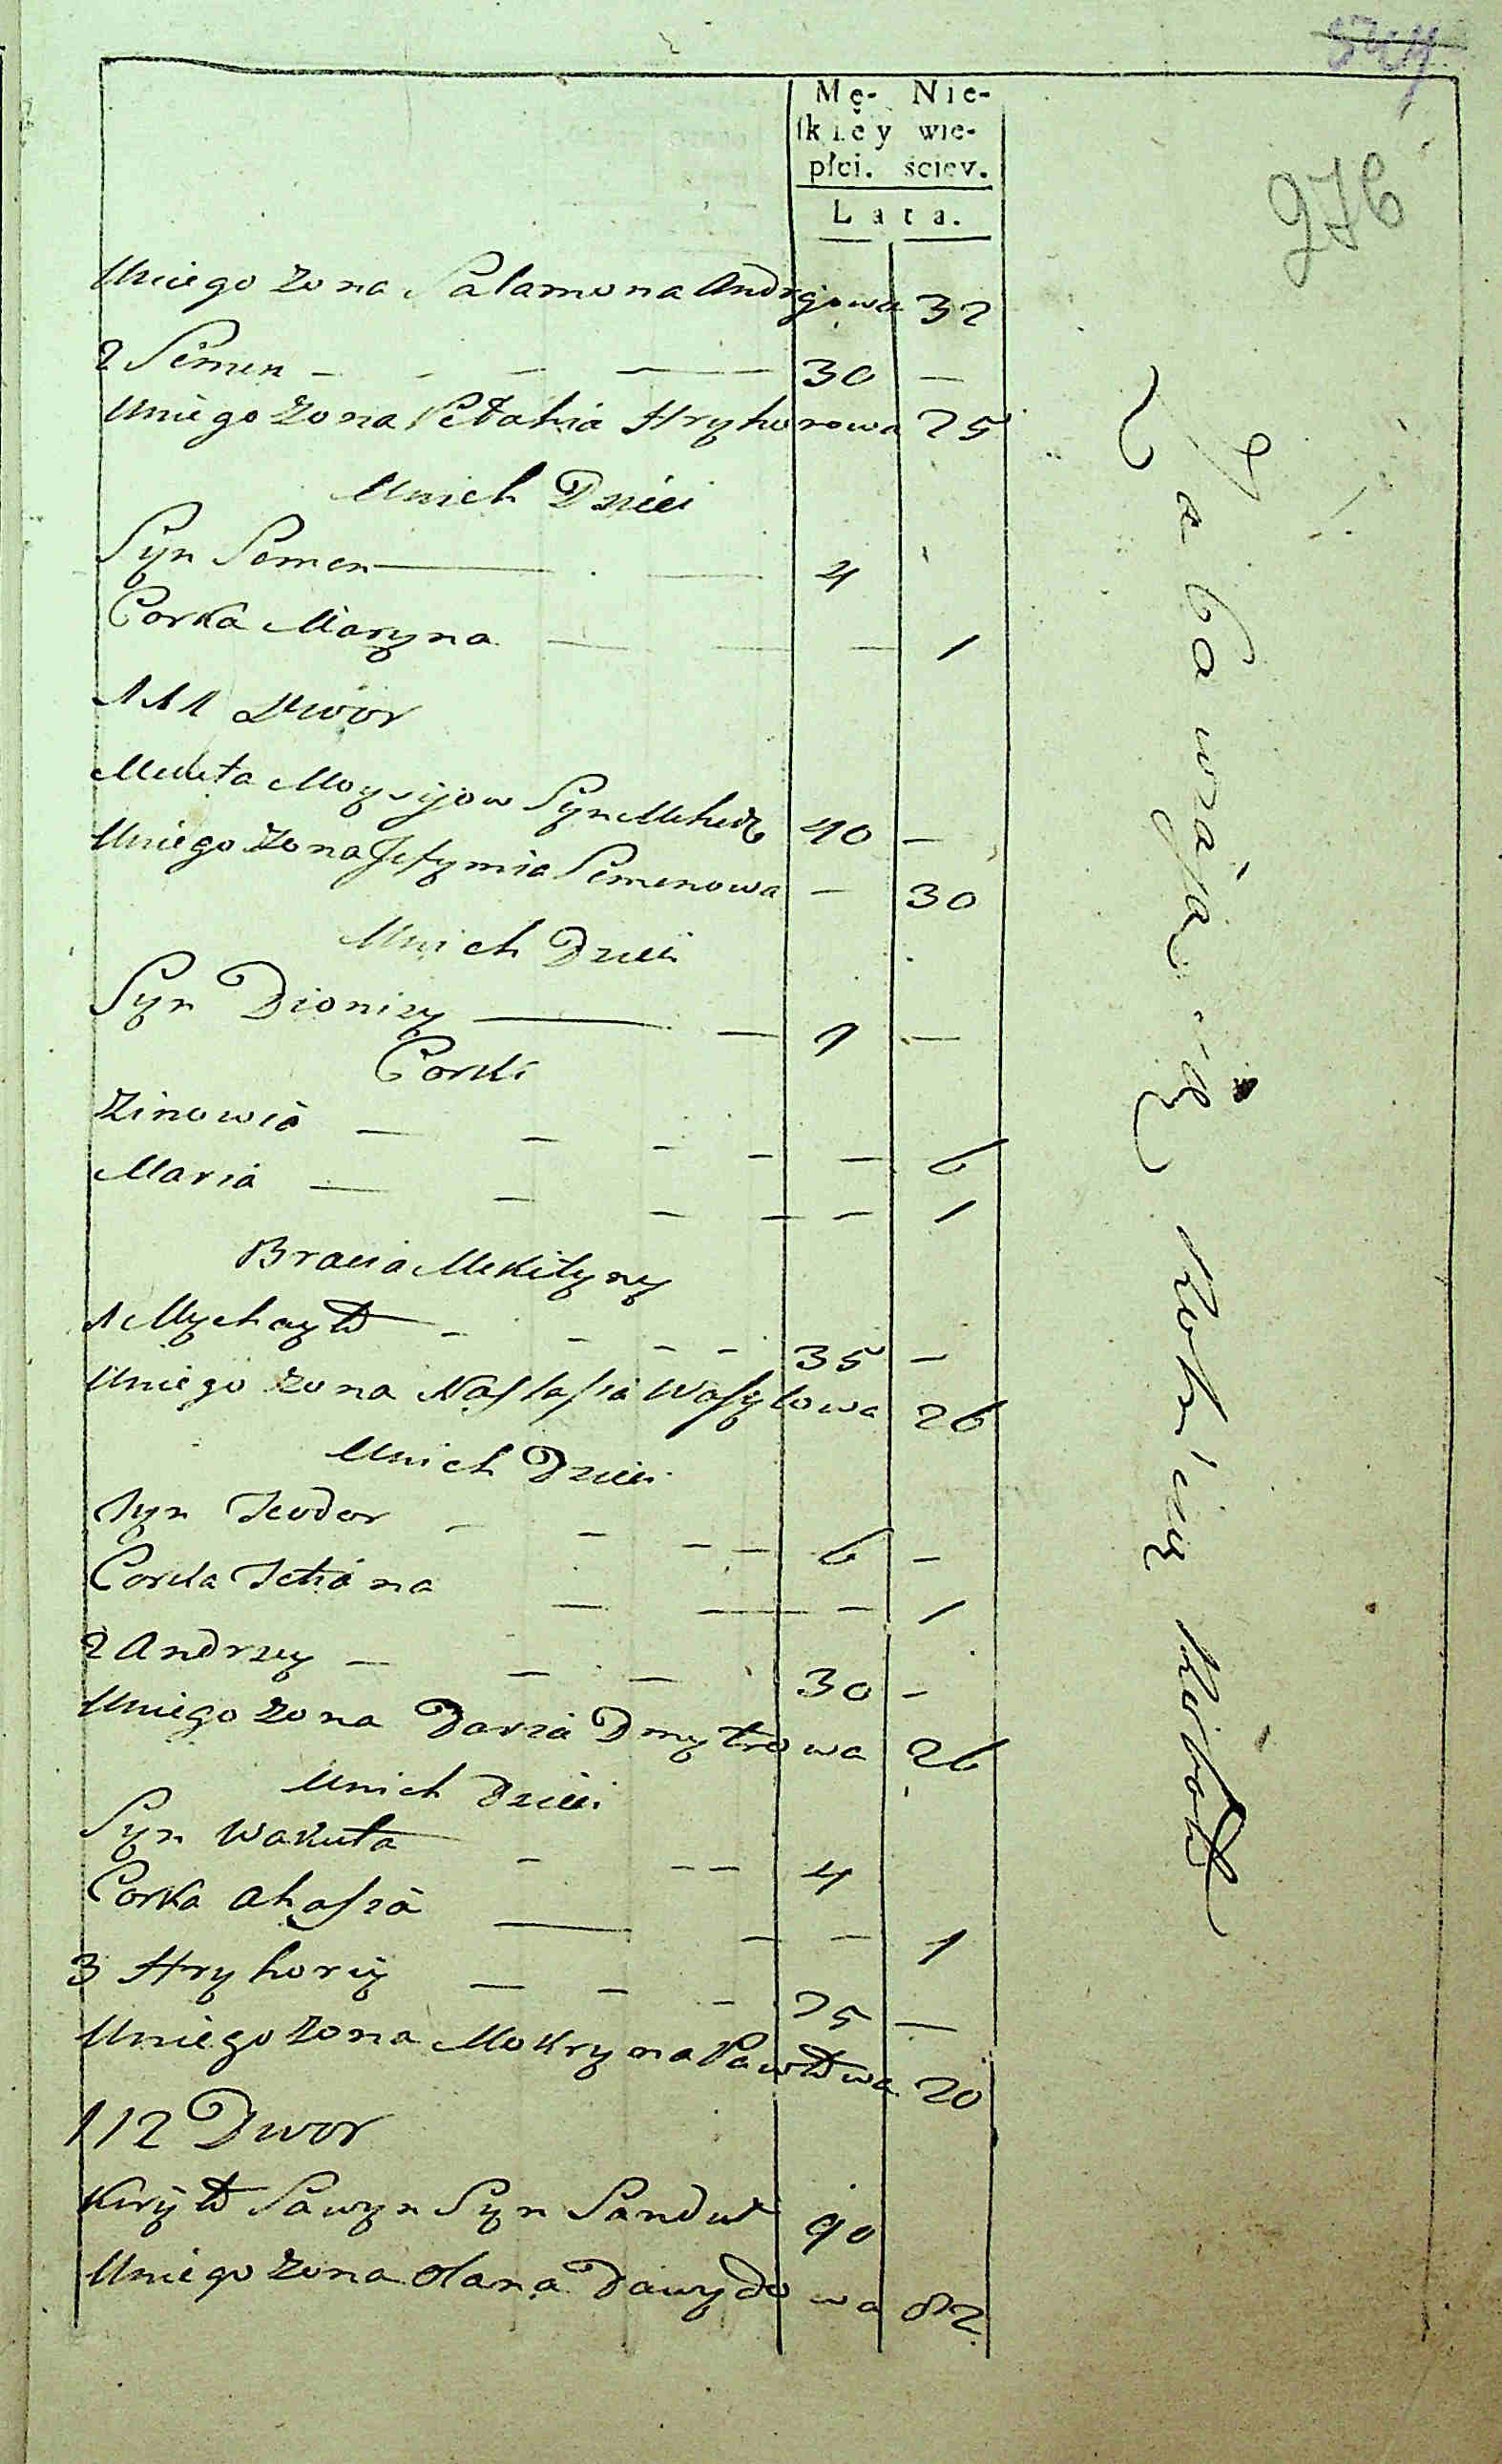 276
Mę- Nie-
skiey wie-
płci. ściey.
Lata.
Uniego zona Salamona Andrejowa 32
2 Semen - - - - 30 -
Uniego zona Pełahia Hryhorowa 25
Unich Dzieci
Syn Semen - - 4
Corka Maryna - - - 1
111 Dwor
Mikita Moysijow Syn 40 -
Uniego zona Jefymia Semenowa - 30
Unich Dzieci
Syn Dionizy - - 1 -
Corki
Zinowia - - - - - 6
Maria - - - - - 1
Bracia Mikityny
1 Mychayło - - - - 35 -
Uniego zona Nastasia Wasylowa 26
Unich Dzieci
Syn Teodor - - - - 6 -
Corka Tetiana - - - 1
2 Andrzey - - - 30 -
Uniego zona Daria Dmytrowa 26
Unich Dzieci
Syn Wakuła - - - 4
Corka Ahafia - - - 1
3 Hryhoriy - - - 25 -
Uniego zona Mokryna Pawłowa 20
112 Dwor
Kiryło Sawyn Syn Sanduł 90
Uniego zona Olana Dawydowa 82
Zabawiają się robieniem